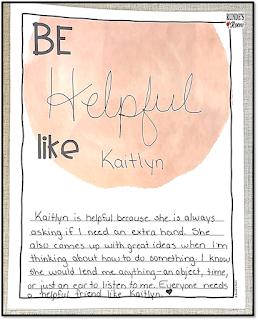 RUNDE'S
Room
BE
Helpful
like
Kaitlyn
Kaitlyn is helpful because she is always
asking if I need an extra hand. She
also comes up with great ideas when I'm
thinking about how to do something. I know
she would lend me anything-an object, time,
or just an ear to listen to me. Everyone needs
a helpful friend like Kaitlyn. ♥